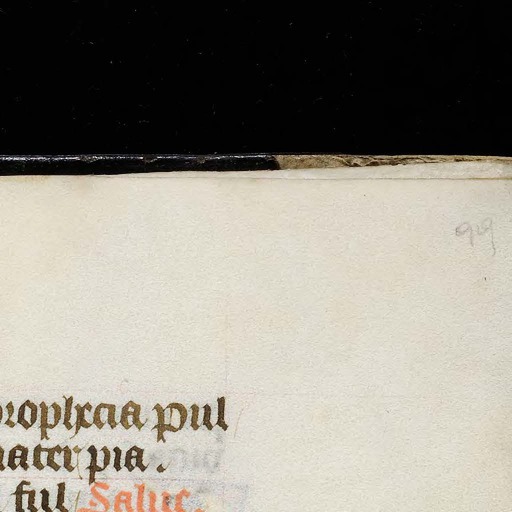 prophetia pul
mater pia.
ful Salue.